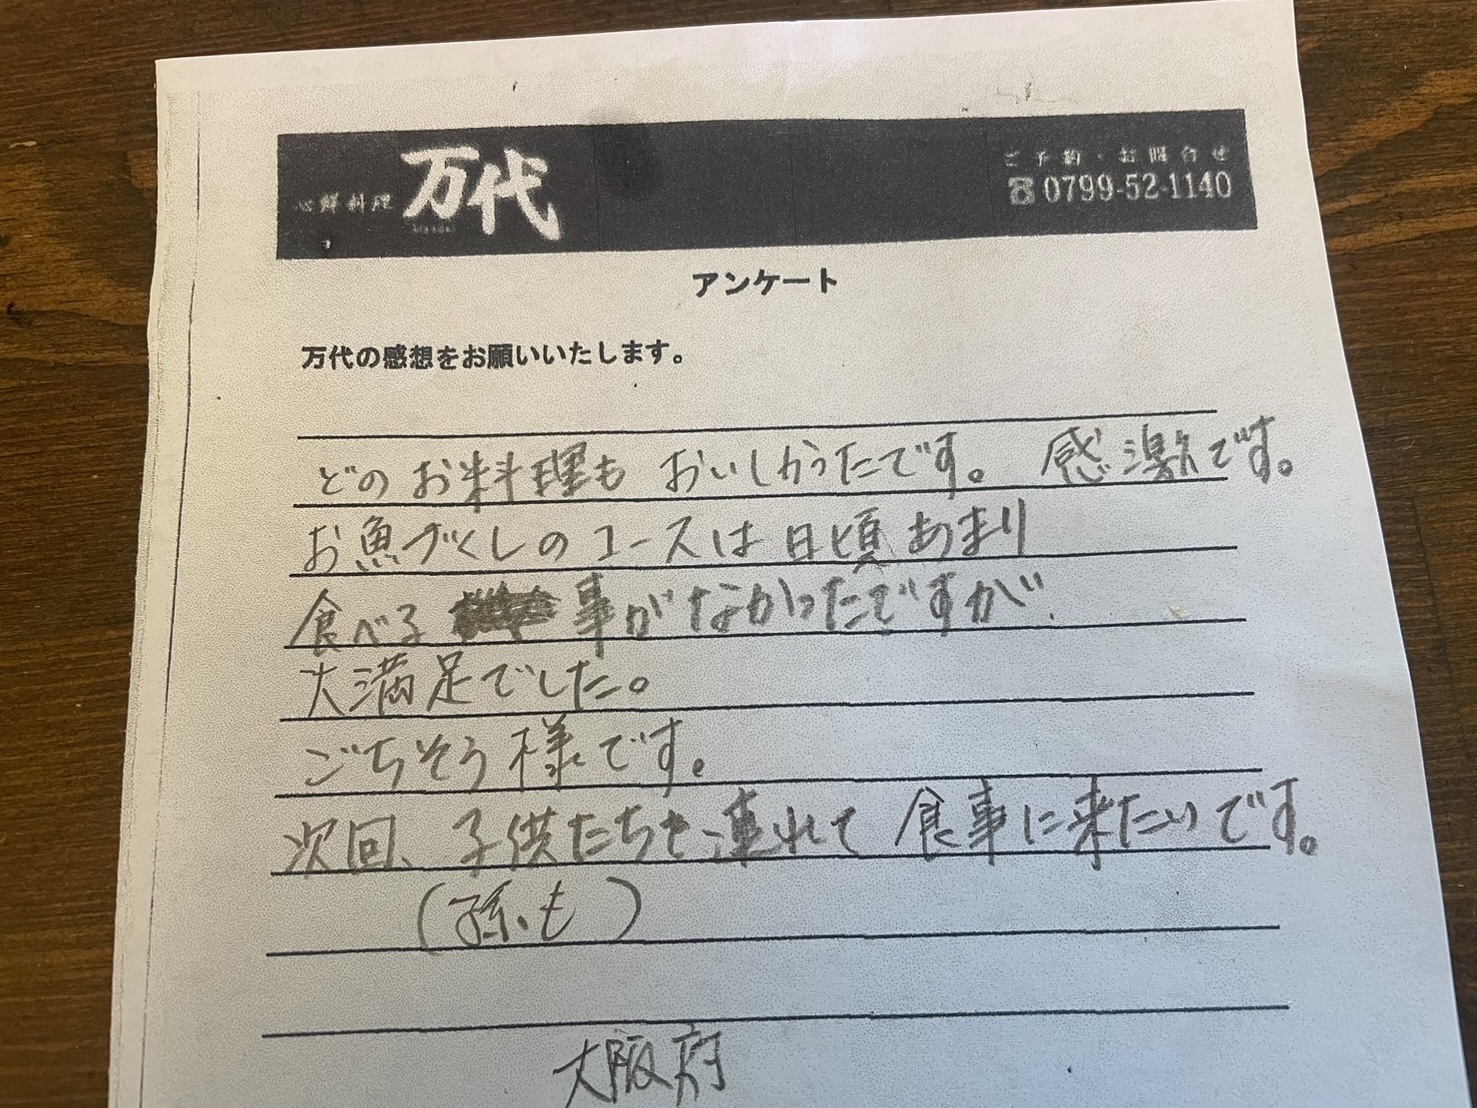 心鮮料理 万代
ご予約・お問合せ
☎0799-52-1140
アンケート
万代の感想をお願いいたします。
どのお料理も おいしかったです。 感激です。
お魚づくしのコースは日頃あまり
食べる 事がなかったですが、
大満足でした。
ごちそう様です。
次回、子供たちを連れて 食事に来たいです。
(孫も)
大阪府